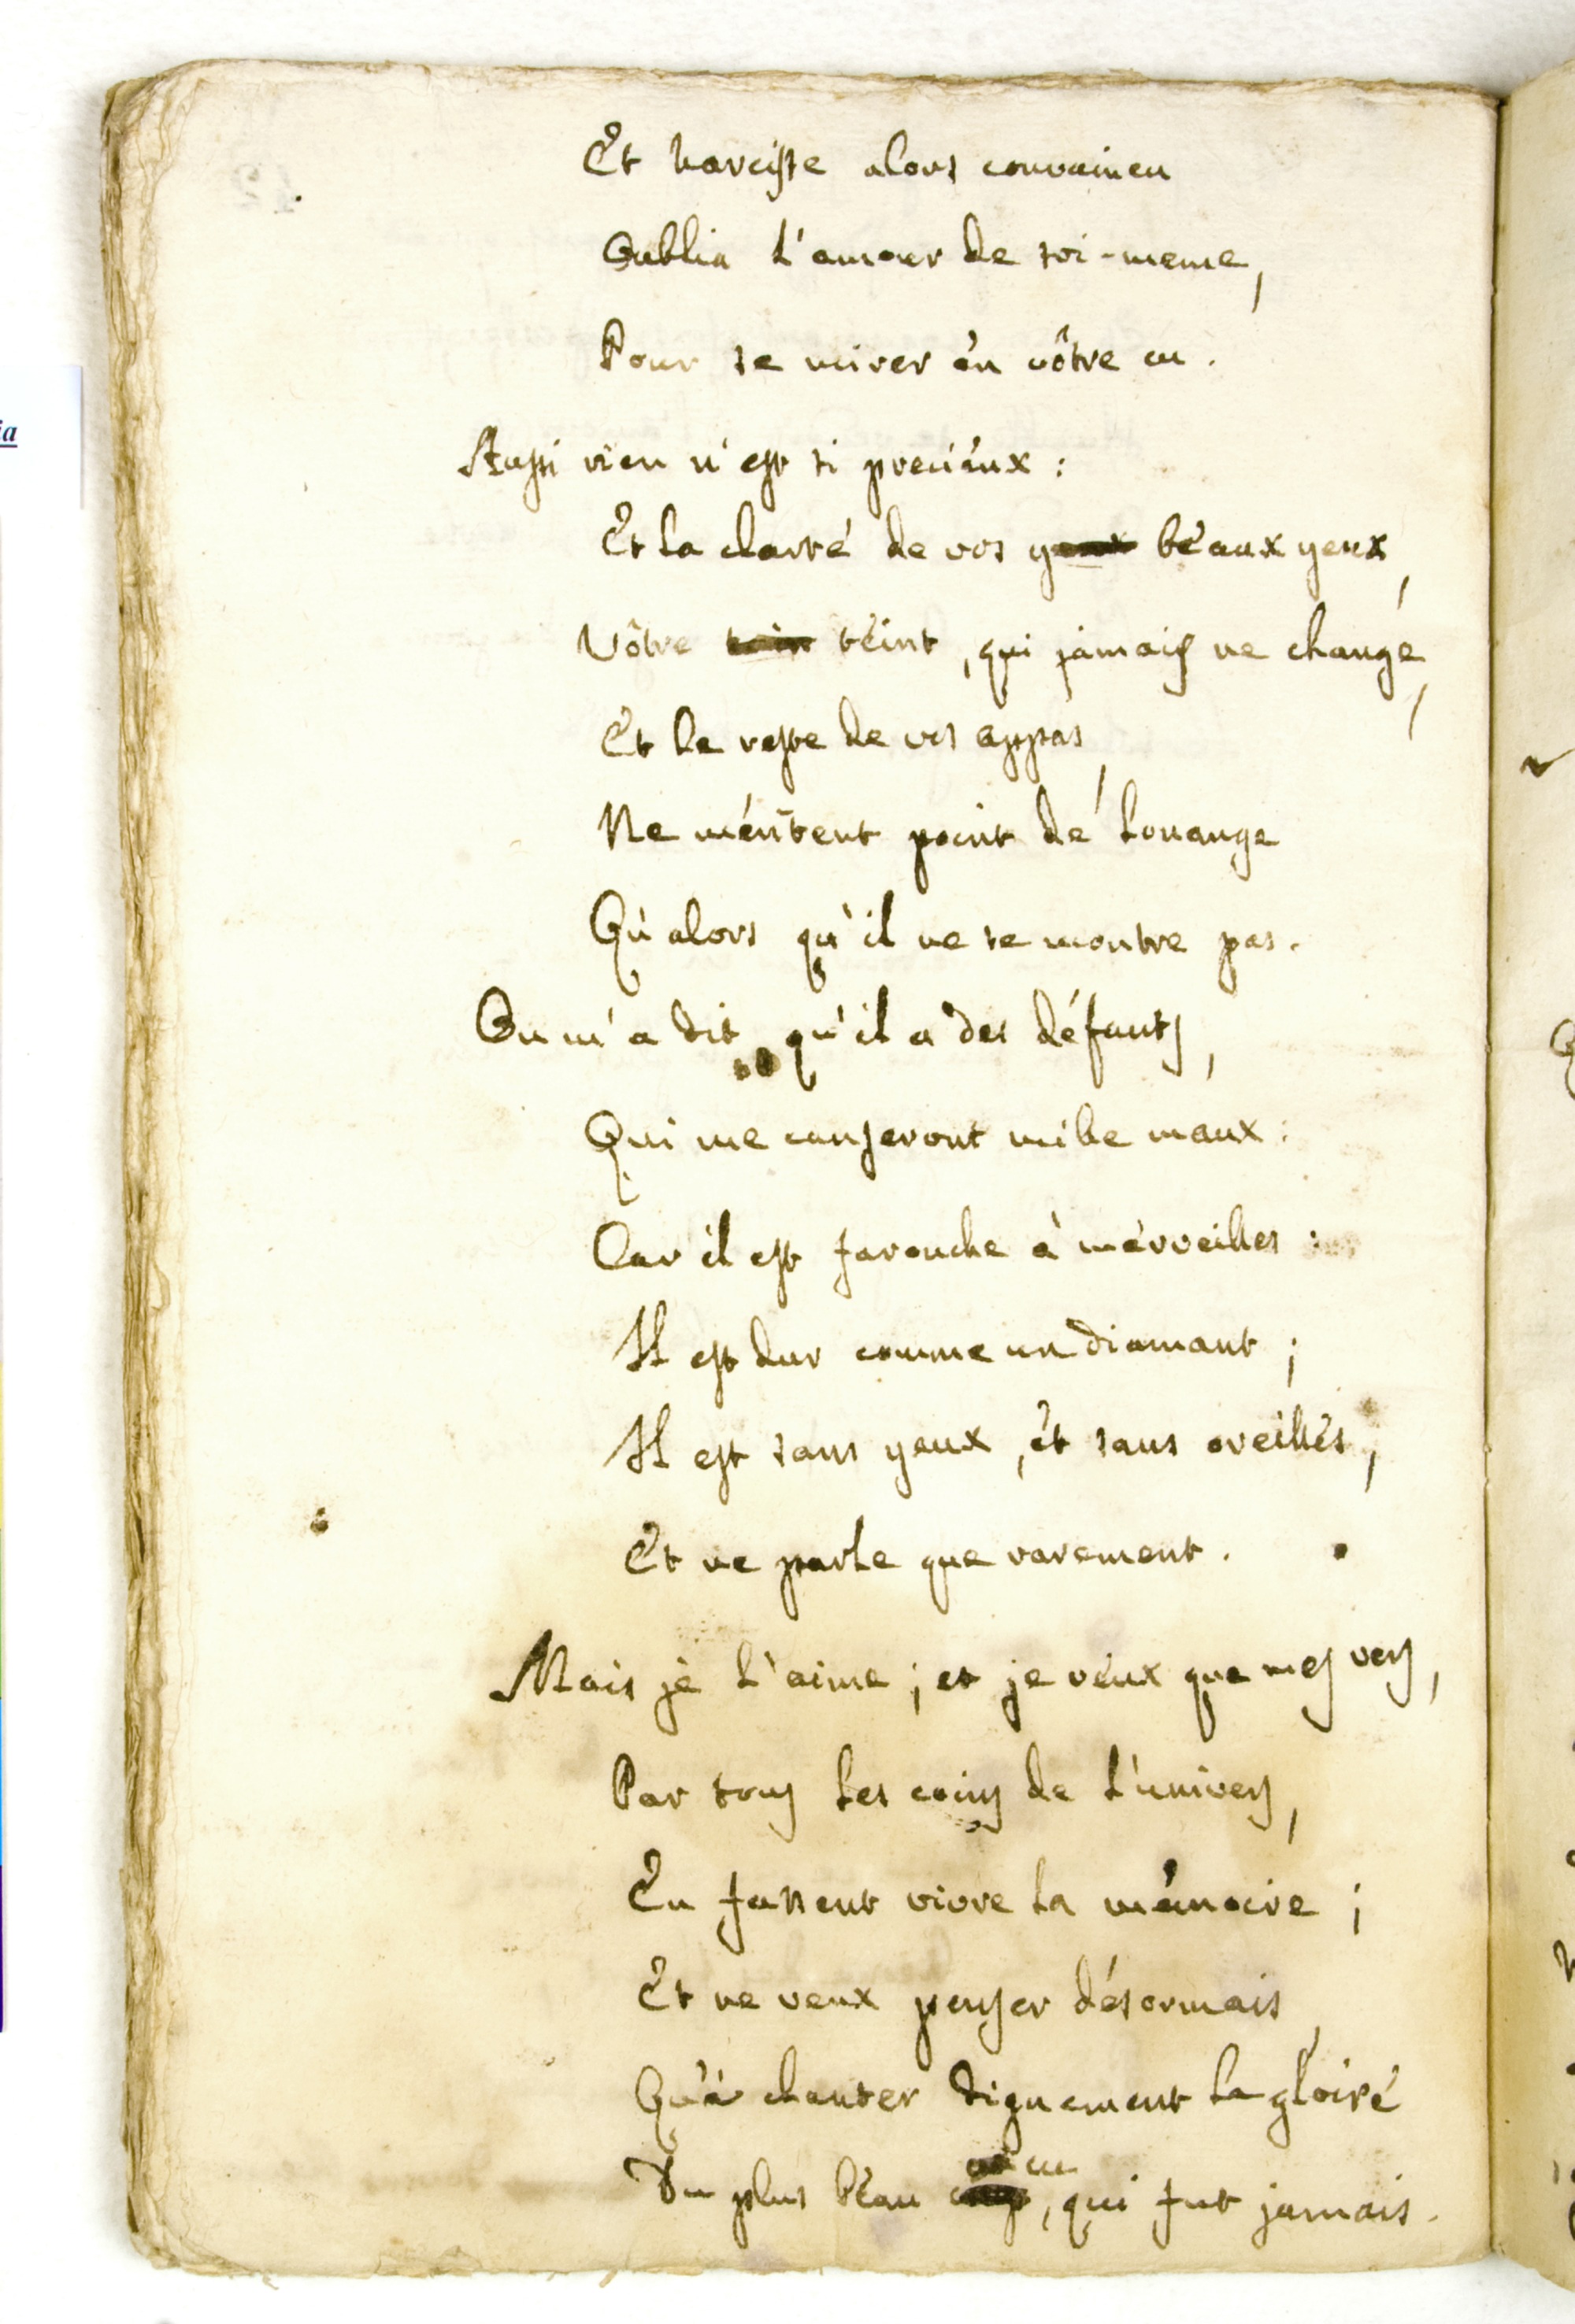 ia
42
Et Narcisse alors convaincu
Oublia l'amour de soi-meme,
Pour se mirer én vôtre cu.
Aussi rien n'est si preciéux :
Et la clarté de vos yeux béaux yeux,
Vôtre tein téint, qui jamais ne changé,
Et le reste de vos appas,
Ne méritent point dé louange
Qu'alors qu'il ne se montre pas.
On m'a dit qu'il a des défauts,
Qui me causeront mille maux :
Car il est farouche à mérveilles :
Il est dur comme un diamant ;
Il est sans yeux, ét sans oreillés,
Et ne parle que rarement.
Mais jé l'aime ; et je véux que mes vers,
Par tous les coins de l'univers,
En fassent vivre la mémoire ;
Et ne veux penser désormais,
Qu'à chanter dignement la gloiré
Du plus béau cu, qui fut jamais.